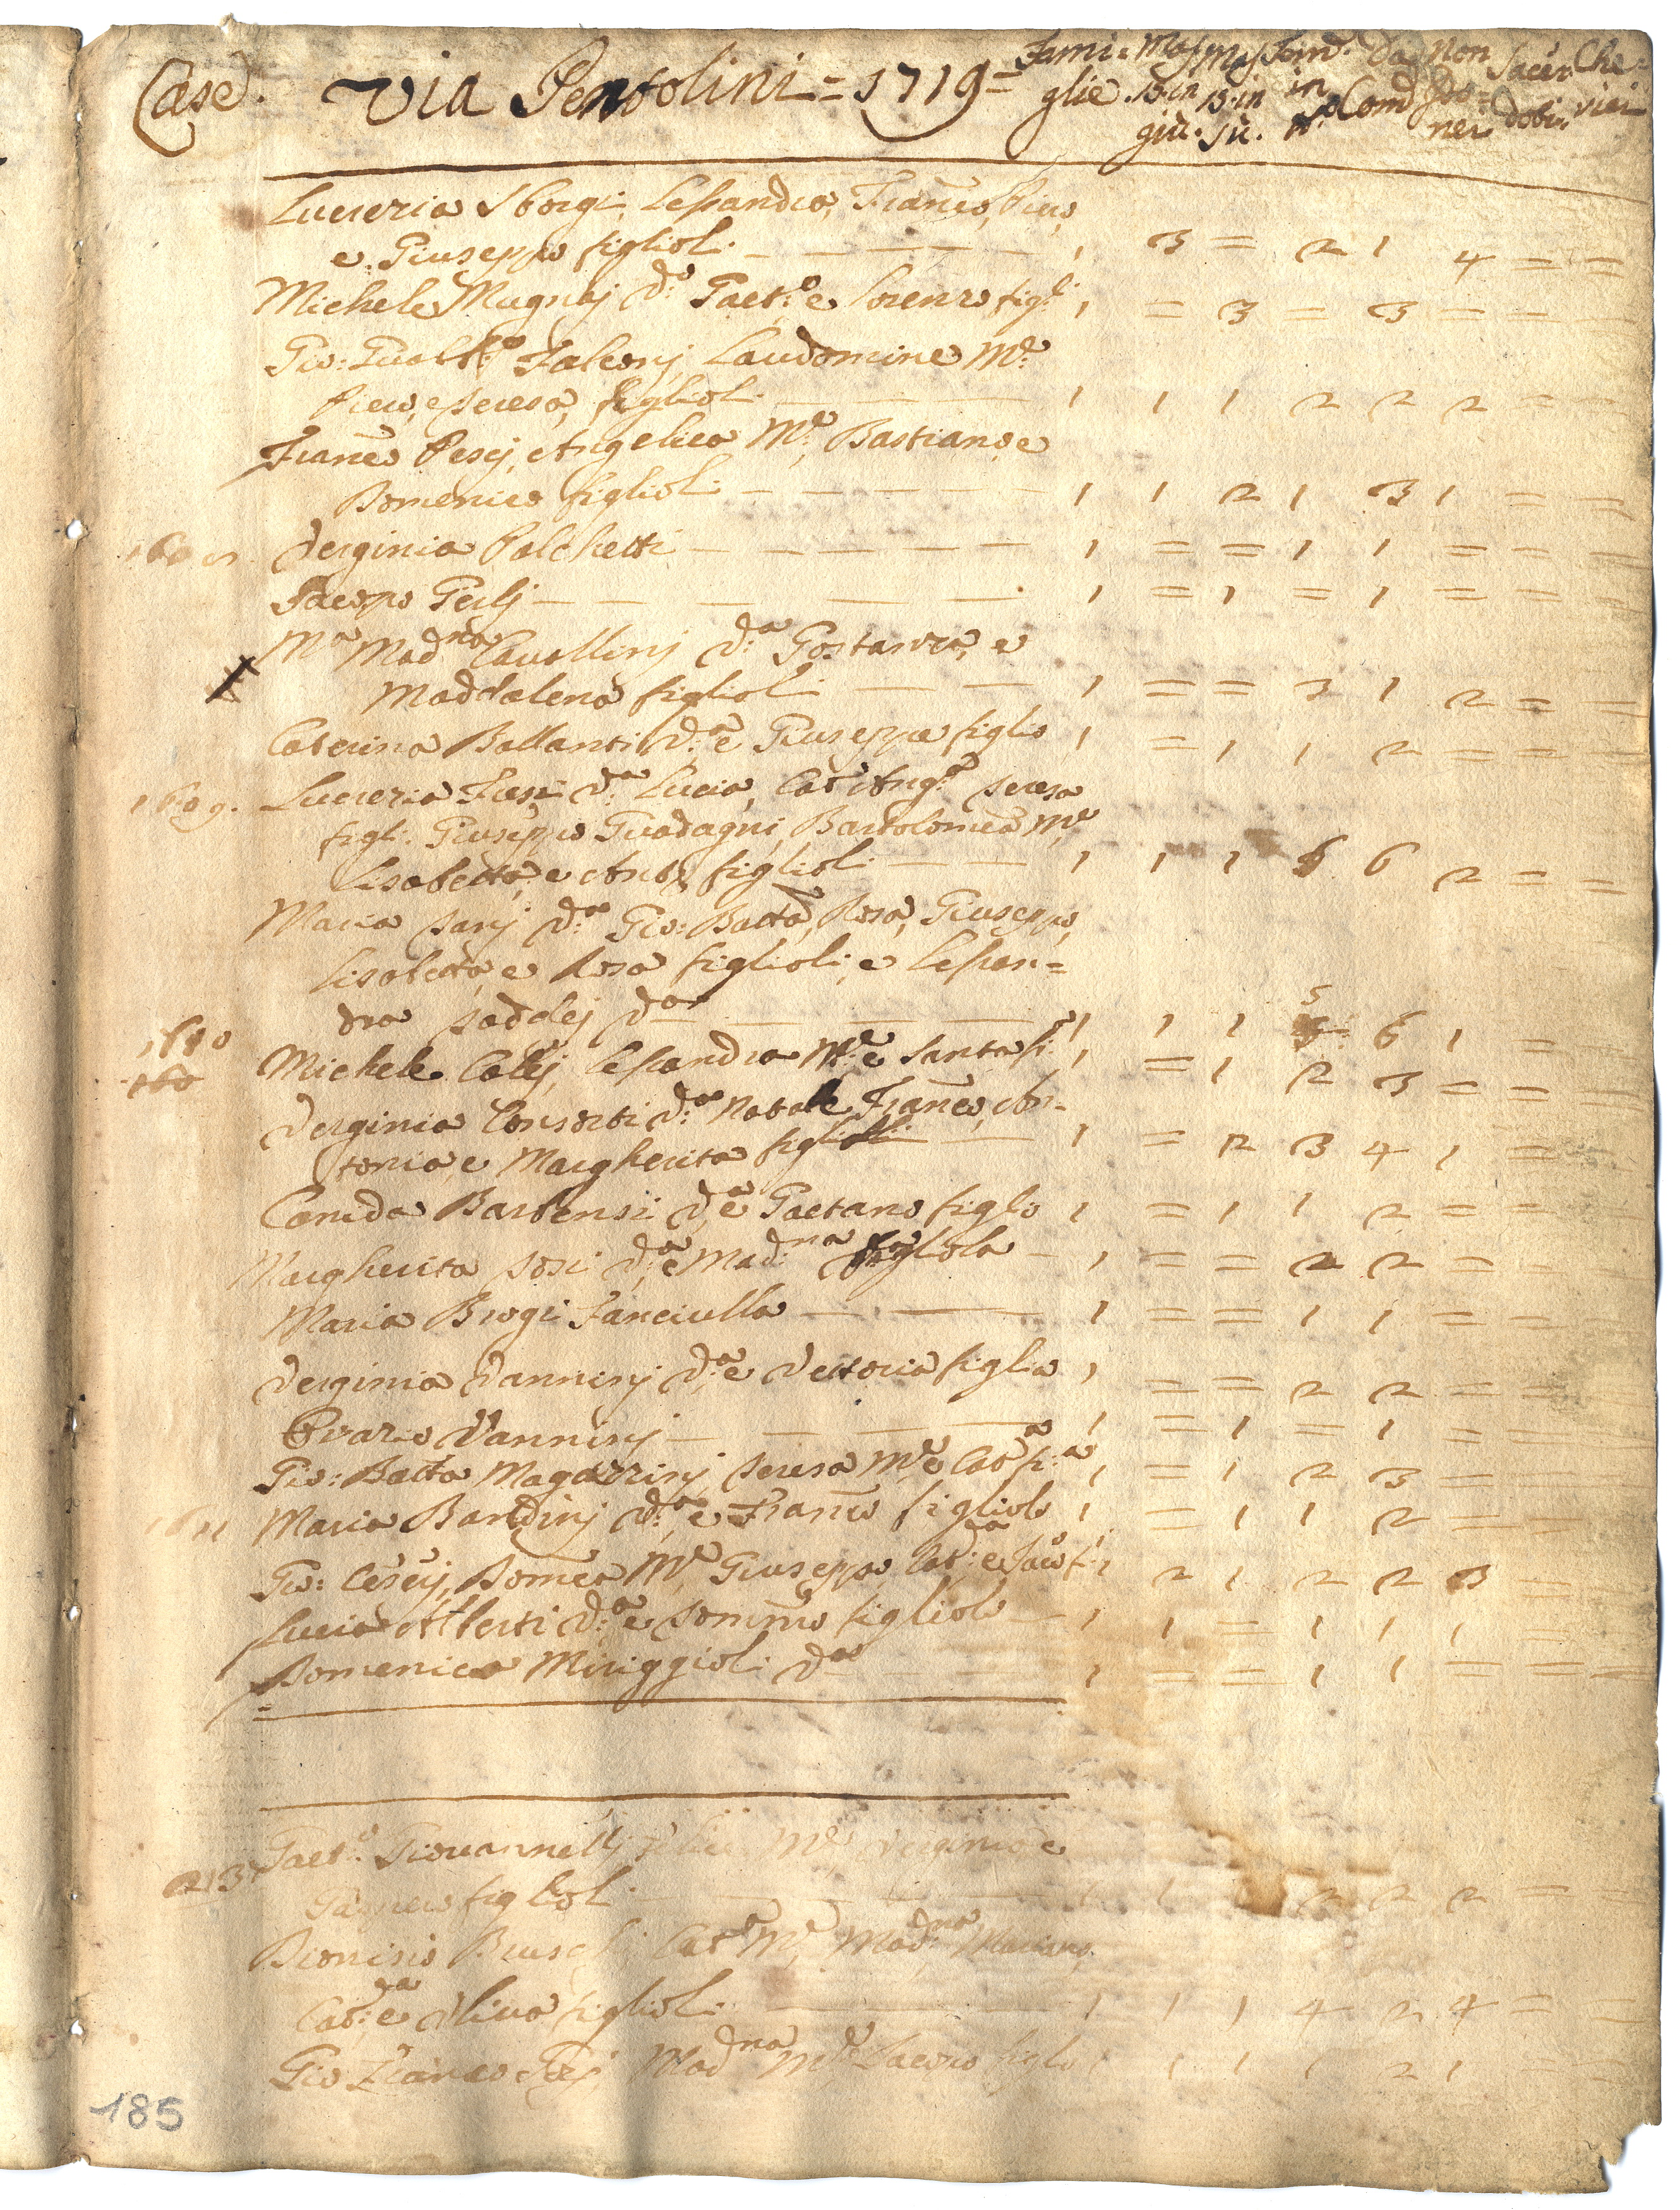 Case. Via Pentolini = 1719 = Fami= Mas. Mas. Fem. Da Non Sacer Che=
glie. 15 in 15 in in Com. idο= doti. rici
giù. sù. nei
Lucrezia Sborgi, Lessandra, Franco, Piero,
e Giuseppe figlioli — — — — 1 3 = 2 1 4 = =
Michele Mugnaj Do: Gaet:o e Lorenzo figli 1 = 3 = 3 = = =
Gio: Gualt:o Falconj, Laudomine Me:
Piero, e Teresa, figlioli — — — 1 1 1 2 2 2 = =
Franco Pescj, Angelica Me:, Bastiano, e
Domenico figlioli — — — — — 1 1 2 1 3 1 = =
1608 Verginia Polchetti — — — — — 1 = = 1 1 = = =
Jacopo Gerlj — — — — — 1 = 1 = 1 = = =
Ma Madna Cavallinj Da: Gostanza, e
Maddalena figlioli — — 1 = = 3 1 2 = =
Caterina Ballanti Da: e Giuseppe figlio 1 = 1 1 2 = = =
1609. Lucrezia Fusi Da: Lucia, Cat: Ang:a Teresa
figli: Giuseppe Guadagni, Bartolomea Me:
Lisabetta, e Anto: figlioli — — 1 1 1 6 2 = =
Maria Sarj Da: Gio: Batta, Rosa, Giuseppe,
Lisabetta, e Rosa figlioli, e Lessan=
dra Taddej Da — — — 1 1 1 5 6 1 =
1610 Michele Calej, Lessandra Me: e Santa fi: 1 = 1 2 3 = =
160
Verginia Consorti Da: Natale, Franco, An=
tonia, e Margherita figlioli — 1 = 2 3 4 1 =
Camida Barbensi Da: e Gaetano figlo 1 = 1 1 2 = =
Margherita Tosi Da: e Mad:na figliola — 1 = = 2 2 = =
Maria Brogi Fanciulla — — 1 = = 1 1 = =
Verginia Vanninj Da: e Vettoria figlia 1 = = 2 2 = =
Orazio Vanninj — — — 1 = 1 = 1 = =
Gio: Batta Magazzinj, Teresa Me: e Cata fi:a 1 = 1 2 3 = =
1611 Maria Bandinj Da: e Franco figliolo 1 = 1 1 2 = =
Gio: Ceserj, Domca Me: Giuseppe, Cat:a e Jaco fi: 1 2 1 2 2 3 =
Lucia Alberti Da: e Tommo figliolo — 1 1 = 1 1 1 =
Domenica Miriggioli Da 1 = = 1 1 = = =
213 Gaet:o Giovannellj Me: Verginia e
figlioli — — 1 1 2 2 2 = =
Dionisio Cata Me: Mad:na Mariano,
Cat:a e Oliva figlioli — — 1 1 1 4 2 4 = =
Gio Franco Madna Me: Jacopo figlo 1 1 1 1 2 1 = =
185